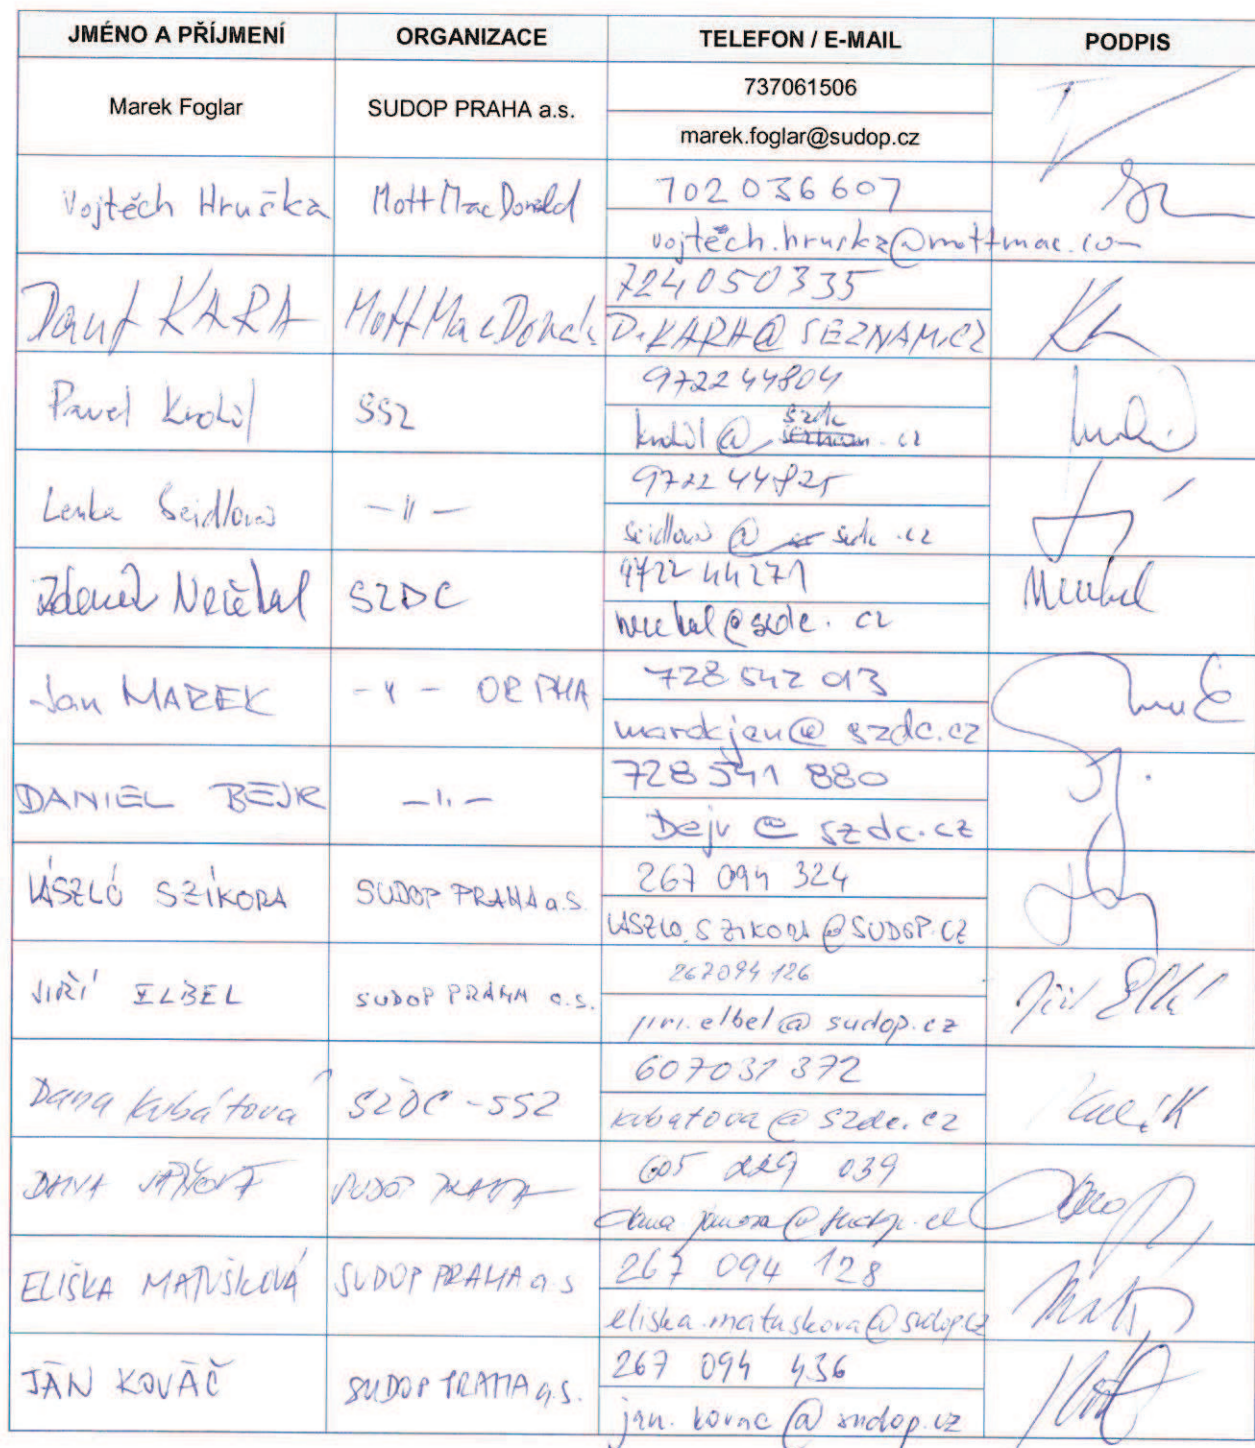 JMÉNO A PŘÍJMENÍ ORGANIZACE TELEFON / E-MAIL PODPIS
Marek Foglar SUDOP PRAHA a.s. 737061506
marek.foglar@sudop.cz
Vojtěch Hruška Mott MacDonald 702 036 607
vojtěch.hruska@mottmac.com
KARA Mott MacDonald 724 050 335
D.KARA@SEZNAM.CZ
Pavel Krohil SSZ 972244804
krohil@szdc.cz
Lenka Seidlová —||— 972244825
seidlova@szdc.cz
Zdeněk Nečekal SZDC 9722 44271
necekal@szdc.cz
Jan MAREK -||- ORPHA 728 542 013
marekjan@szdc.cz
DANIEL BEJR —||— 728 541 880
Bejr@szdc.cz
LÁSZLÓ SZIKORA SUDOP PRAHA a.s. 267 094 324
LASZLO.SZIKORA@SUDOP.CZ
JIŘÍ ELBEL SUDOP PRAHA a.s. 267094126 Jiří Elbel
jiri.elbel@sudop.cz
Dana Kubátová SŽDC - SSZ 607031372
kubatova@szdc.cz
DANA JÁNOVÁ SUDOP PRAHA 605 229 039
dana.janova@sudop.cz
ELIŠKA MATUŠKOVÁ SUDOP PRAHA a.s 267 094 128
eliska.matuskova@sudop.cz
JÁN KOVÁČ SUDOP PRAHA a.s. 267 094 436
jan.kovac@sudop.cz